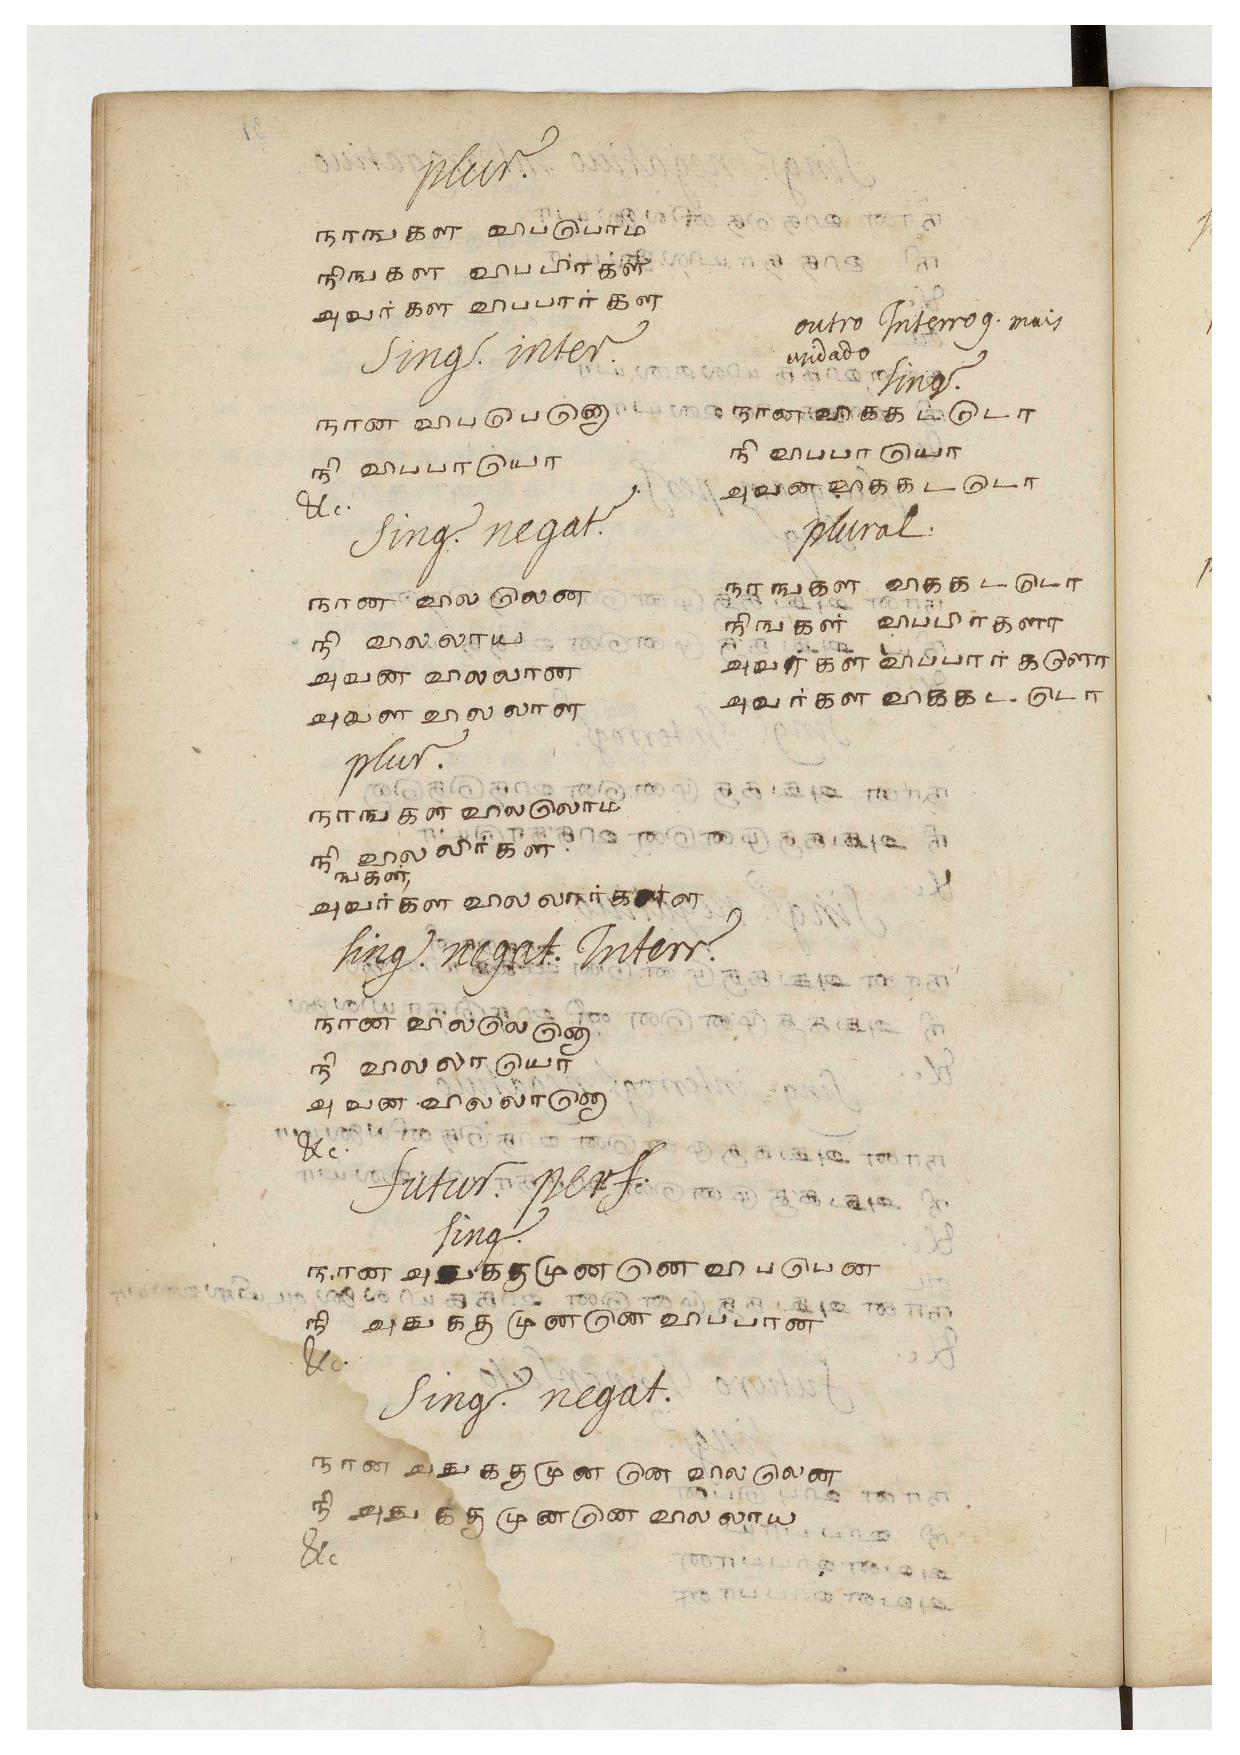 plur.
நாஙகள விபபொம
நிஙகள விபபிர்கள
அவர்கள விபபார்கள
Sing. inter.
நான விபபெனொ
நி விபபாயொ
&c.
Sing. negat.
நான விலலென
நி விலலாய
அவன விலலான
அவள விலலாள
plur.
நாஙகள விலலொம
நி விலலிர்கள
ஙகள்
அவர்கள விலலார்கள
sing. negat. Interr.
நான விலலெனொ
நி விலலாயொ
அவன விலலானொ
&c.
futur. perf.
sing.
நான அதுககுமுனனெ விபபென
நி அதுககுமுனனெ விபபான
&c.
Sing. negat.
நான அதுககுமுனனெ விலலென
நி அதுககுமுனனெ விலலாய
&c
outro Interrog. mais
sing.
நான விககடடொ
நி விபபாயொ
அவன விககடடொ
plural.
நாஙகள விககடடொ
நிஙகள் விபபிர்களா
அவர்கள விபபார்களொ
அவர்கள விககடடொ